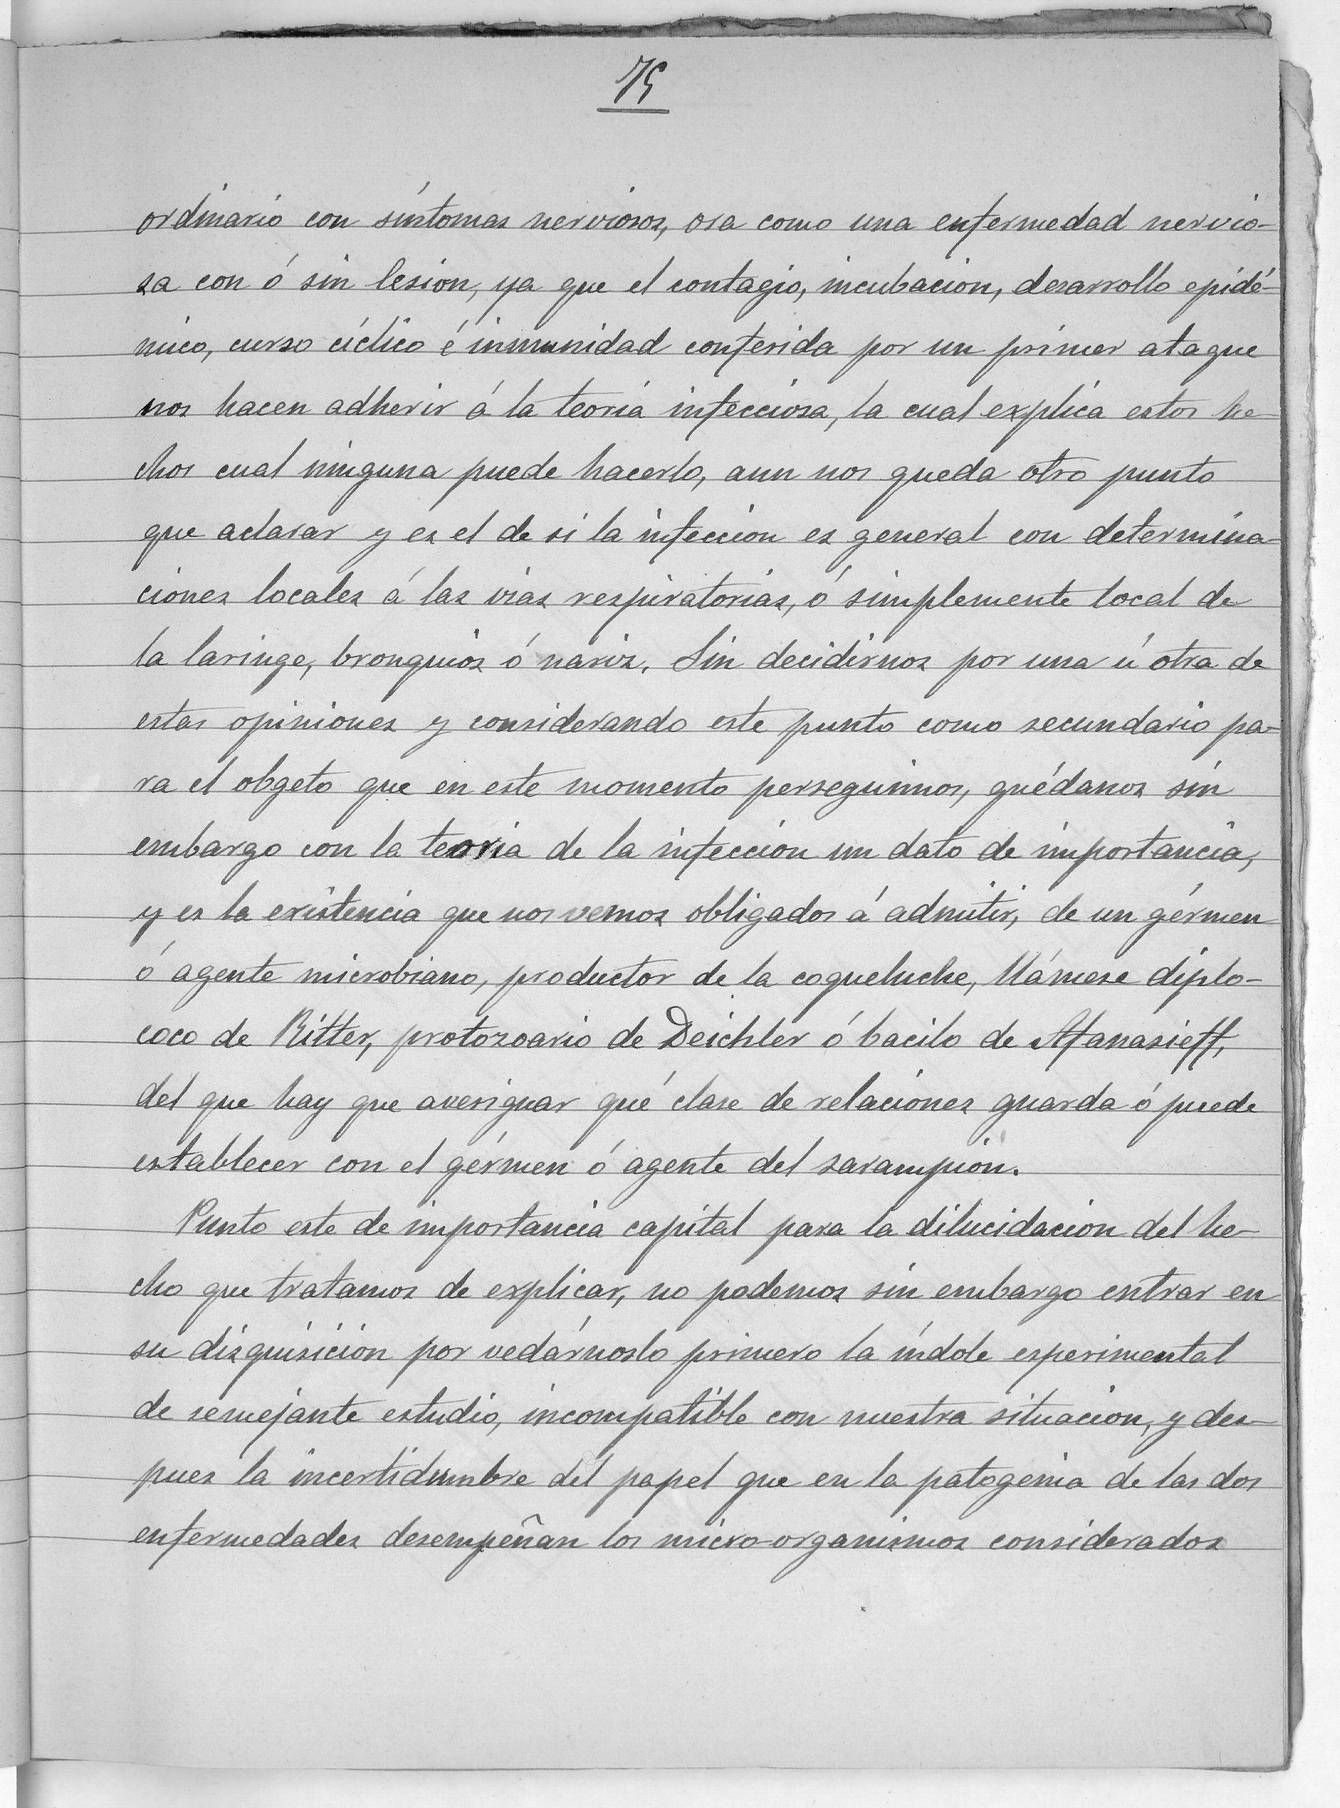 75
ordinario con síntomas nerviosos, ora como una enfermedad nervio-
sa con ó sin lesion, ya que el contagio, incubacion, desarrollo epidé-
mico, curso cíclico é inmunidad conferida por un primer ataque
nos hacen adherir á la teoria infecciosa, la cual explica estos he-
chos cual ninguna puede hacerlo, aun nos queda otro punto
que aclarar y es el de si la infeccion es general con determina-
ciones locales á las vias respiratorias, ó simplemente local de
la laringe, bronquios ó nariz. Sin decidirnos por una ú otra de
estas opiniones y considerando este punto como secundario pa-
ra el obgeto que en este momento perseguimos, quédanos sin
embargo con la teoria de la infeccion un dato de importancia,
y es la existencia que nos vemos obligados á admitir, de un gérmen
ó agente microbiano, productor de la coqueluche, llámese diplo-
coco de Ritter, protozoario de Deichler ó bacilo de Afanasieff,
del que hay que averiguar qué clase de relaciones guarda ó puede
establecer con el gérmen ó agente del sarampion.
Punto este de importancia capital para la dilucidacion del he-
cho que tratamos de explicar, no podemos sin embargo entrar en
su disquisicion por vedárnoslo primero la índole esperimental
de semejante estudio, incompatible con nuestra situacion, y des-
pues la incertidumbre del papel que en la patogenia de las dos
enfermedades desempeñan los micro-organismos considerados